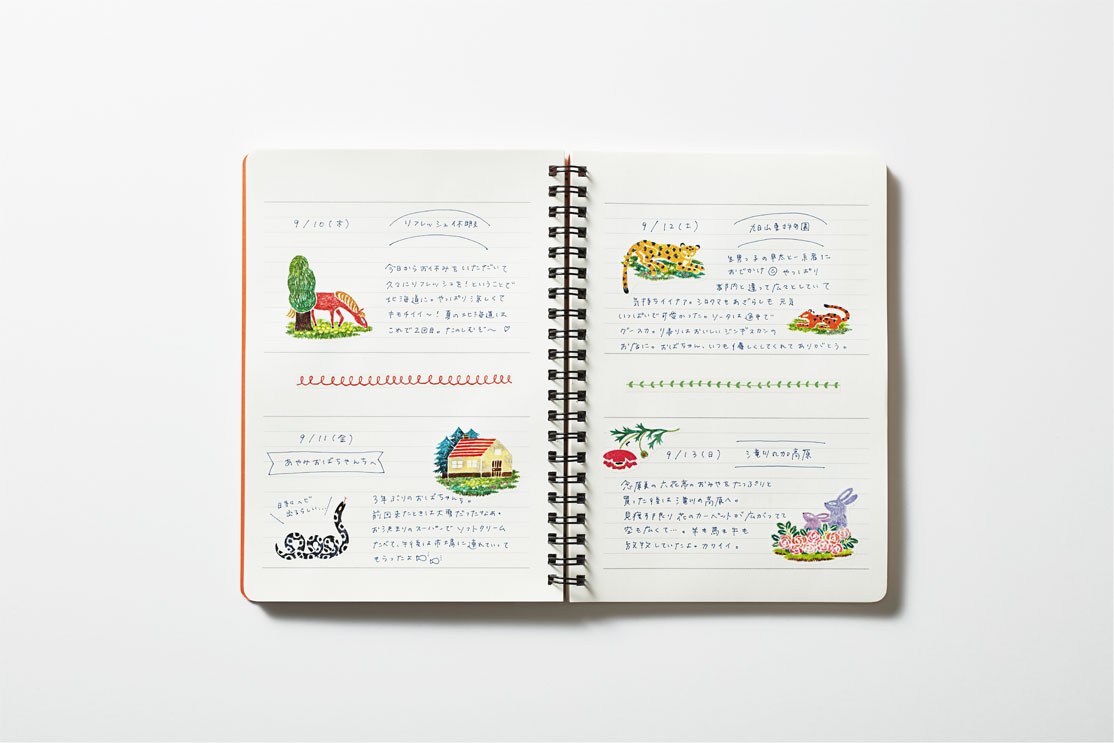 9/10(木)
リフレッシュ休暇
今日からお休みをいただいて
久々にリフレッシュを!ということで
北海道に。やっぱり涼しくて
キモチイイ〜!夏の北海道は
これで2回目。たのしむぞ〜♡
9/11(金)
あやみおばちゃんちへ
出るらしい…
3年ぶりのおばちゃんち。
前回来たときは大雪だったなあ。
お決まりのスーパーでソフトクリーム
たべて、午後は市場に連れていって
もらったよ
9/12(土)
旭山動物園
おでかけ やっぱり
都内と違って広々としていて
気持ちイイナァ。シロクマもあざらしも元気
いっぱいで可愛かった。リータは途中で
グースカ。帰りはおいしいジンギスカンの
お店に。おばちゃん、いつも優しくしてくれてありがとう。
9/13(日)
滝川丸加高原
念願の六花亭のおみやをたっぷりと
買った後は滝川の高原へ。
見渡す限り花のカーペットが広がってて
空も広くて…。羊も馬も牛も
放牧していたよ。カワイイ。